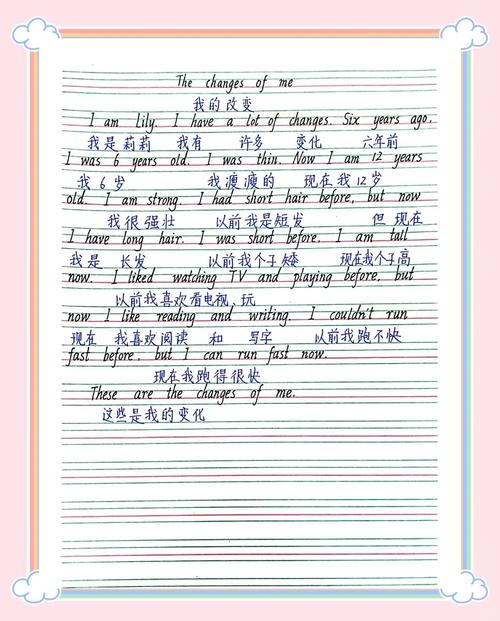 The changes of me
我的改变
I am Lily. I have a lot of changes. Six years ago,
我是莉莉 我有 许多 变化 六年前
I was 6 years old. I was thin. Now I am 12 years
我6岁 我瘦瘦的 现在我12岁
old. I am strong. I had short hair before, but now
我很强壮 以前我是短发 但现在
I have long hair. I was short before. I am tall
我是 长发 以前我个子矮 现在我个子高
now. I liked watching TV and playing before, but
以前我喜欢看电视、玩
now I like reading and writing. I couldn't run
现在 我喜欢阅读 和 写字 以前我跑不快
fast before, but I can run fast now.
现在我跑得很快
These are the changes of me.
这些是我的变化